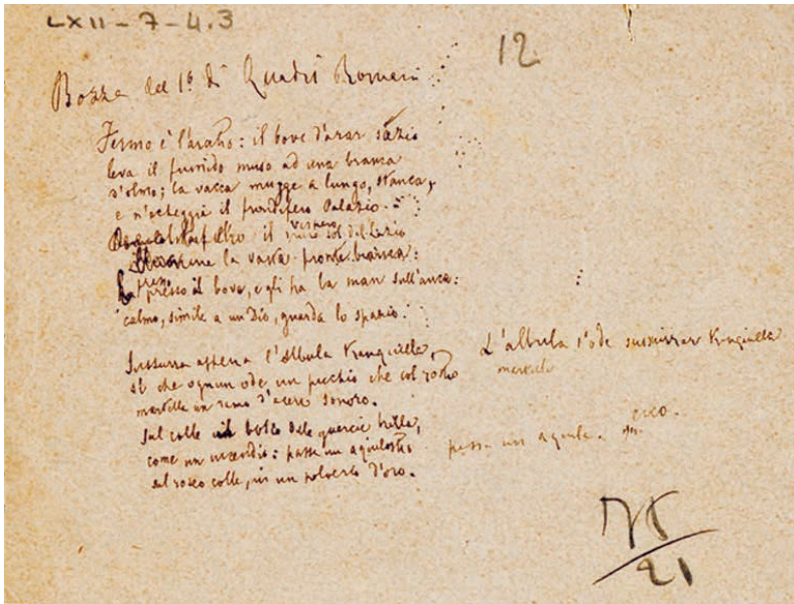 LXII-7-4.3
12
Bozza del 1° di Quadri Romani
Fermo è l'aratro: il bove d'arar sazio
leva il fumido muso ad una branca
d'olmo; la vacca mugge a lungo, stanca,
e n'echeggia il frondifero Palazio.
il vespero sol del Lazio
la vasta fronte bianca:
presso
presso il bove, egli ha la man sull'anca:
calmo, simile a un Dio, guarda lo spazio.
Sussurra appena l'Albula tranquilla,
sì che ognun ode un picchio che col rostro
martella un ramo d'acero sonoro.
Sul colle il bosco delle quercie brilla,
come un incendio: passa un aquilastro
sul roseo colle, in un polverio d'oro.
L'albula s'ode sussurrar tranquilla
martella
eco.
passa un aquila.
21